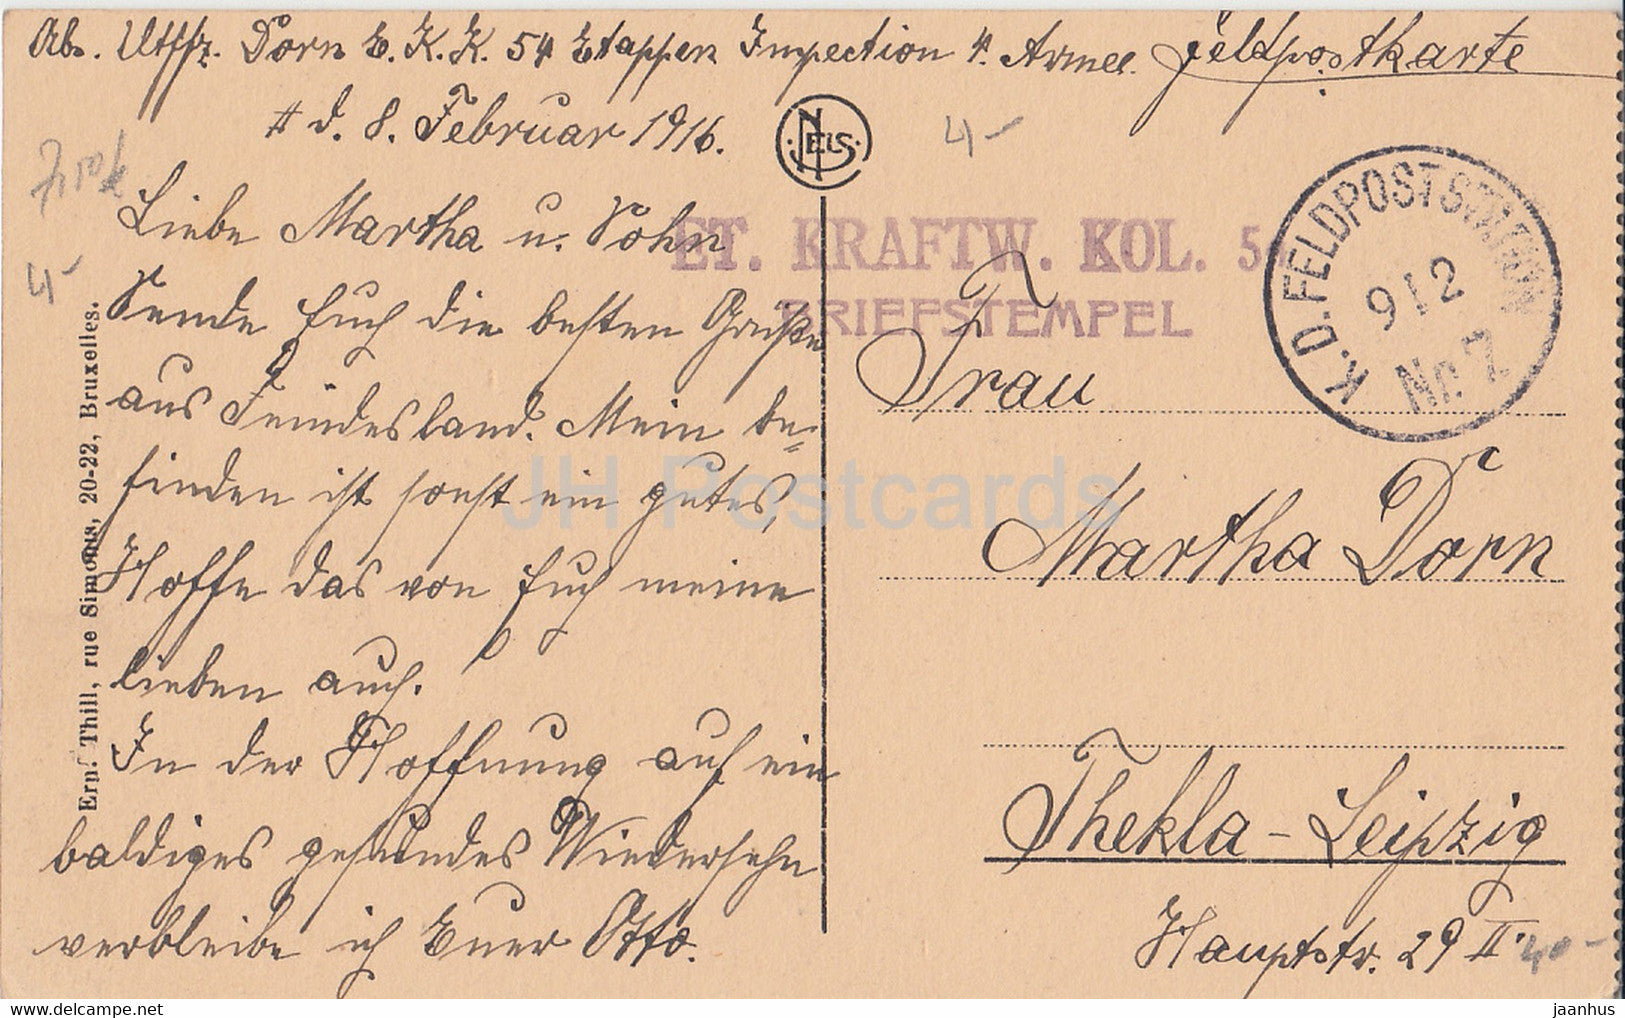 Abs. Utffz. Dorn E. K. K. 54 Etappen Inspection 4. Armee. Feldpostkarte
d. 8. Februar 1916.
NELS
4-
4-
Liebe Martha u. Sohn
Sende Euch die besten Grüße
aus Feindesland. Mein be=
finden ist sonst ein gutes,
Hoffe das von Euch meine
lieben auch.
In der Hoffnung auf ein
baldiges gesundes Wiedersehn
verbleibe ich Euer Otto.
Ern. Thill, rue Simons, 20-22, Bruxelles.
ET. KRAFTW. KOL. 54
BRIEFSTEMPEL
K.D.FELDPOSTSTATION
9 12
Nr. 7
Frau
Martha Dorn
Thekla-Leipzig
Hauptstr. 29 II.
40-
JH Postcards
www.delcampe.net
jaanhus